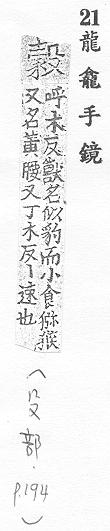 21 龍龕手鏡
呼木反獸名似豹而小食獼猴
又名黃腰又丁木反丨速也
(殳部.
p.194
)